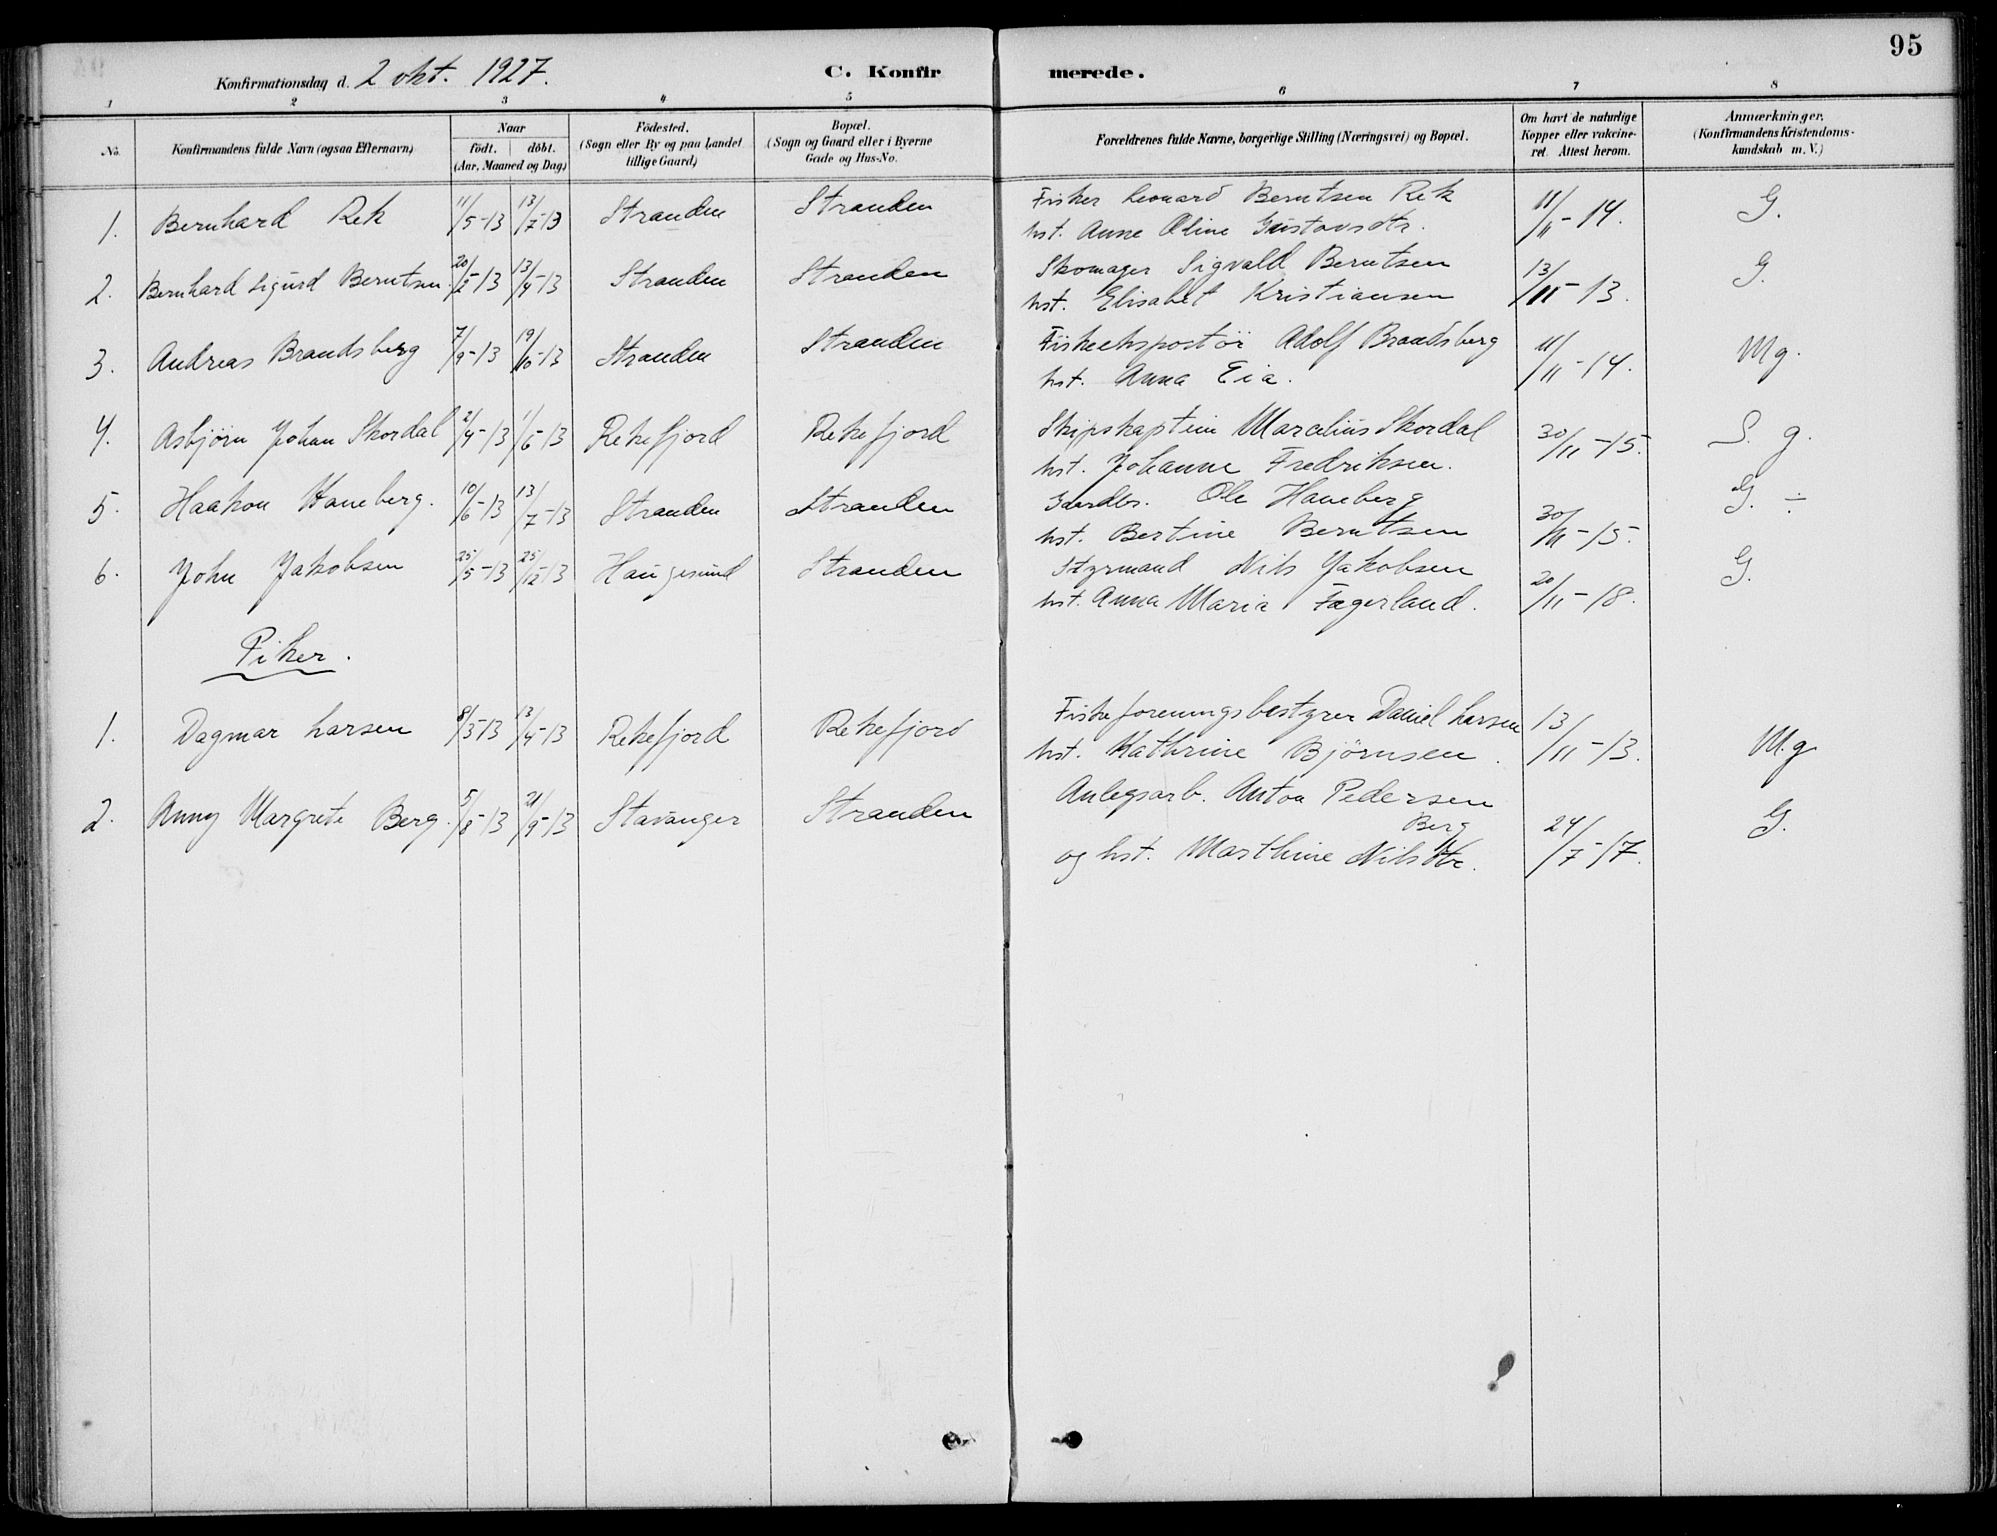 95
Konfirmationsdag d. 2 okt. 1927. C. Konfirmerede.
1 2 3 4 5 6 7 8
No. Konfirmandens fulde Navn (ogsaa Efternavn) Naar födt. döbt. (Aar, Maaned og Dag) Födested. (Sogn eller By og paa Landet tillige Gaard) Bopæl. (Sogn og Gaard eller i Byerne Gade og Hus-No. Forældrenes fulde Navne, borgerlige Stilling (Næringsvei) og Bopæl. Om havt de naturlige Kopper eller vakcineret. Attest herom. Anmærkninger. (Konfirmandens Kristendomskundskab m. V.)
1. Bernhard Rek 11/5-13 13/7-13 Stranden Stranden Fisker Leonard Berntsen Rek
hst. Anne Oline Gustavsdtr. 11/11-14. G.
2. Bernhard Sigurd Berntsen. 20/2-13 13/4-13 Stranden Stranden Skomager Sigvald Berntsen
hst. Elisabet Kristiansen 13/11-13. G.
3. Andreas Brandsberg 7/9-13 19/10-13 Stranden Stranden Fiskeeksportör Adolf Brandsberg
hst. Anna Eia. 11/11-14. Mg.
4. Asbjörn Johan Skordal 2/4-13 1/6-13 Rekefjord Rekefjord Skipskaptein Marcelius Skordal
hst. Johanne Fredriksen. 30/11-15. S. g.
5. Haakon Haneberg. 10/6-13 13/7-13 Stranden Stranden Gaardbr. Ole Haneberg
hst. Bertine Berntsen 30/11-15. G. ÷
6. John Jakobsen 25/5-13 25/12-13 Haugesund Stranden Styrmand Nils Jakobsen
hst. Anna Maria Fagerland. 20/11-18. G.
Piker.
1. Dagmar Larsen 8/3-13 13/4-13 Rekefjord Rekefjord Fiskeforeningsbestyrer Daniel Larsen
hst. Kathrine Björnsen. 13/11-13. M.g
2. Anny Margrete Berg. 5/8-13 21/9-13 Stavanger Stranden Anlegsarb. Anton Pedersen
Berg
og hst. Marthine Nilsdtr. 24/7-17. G.